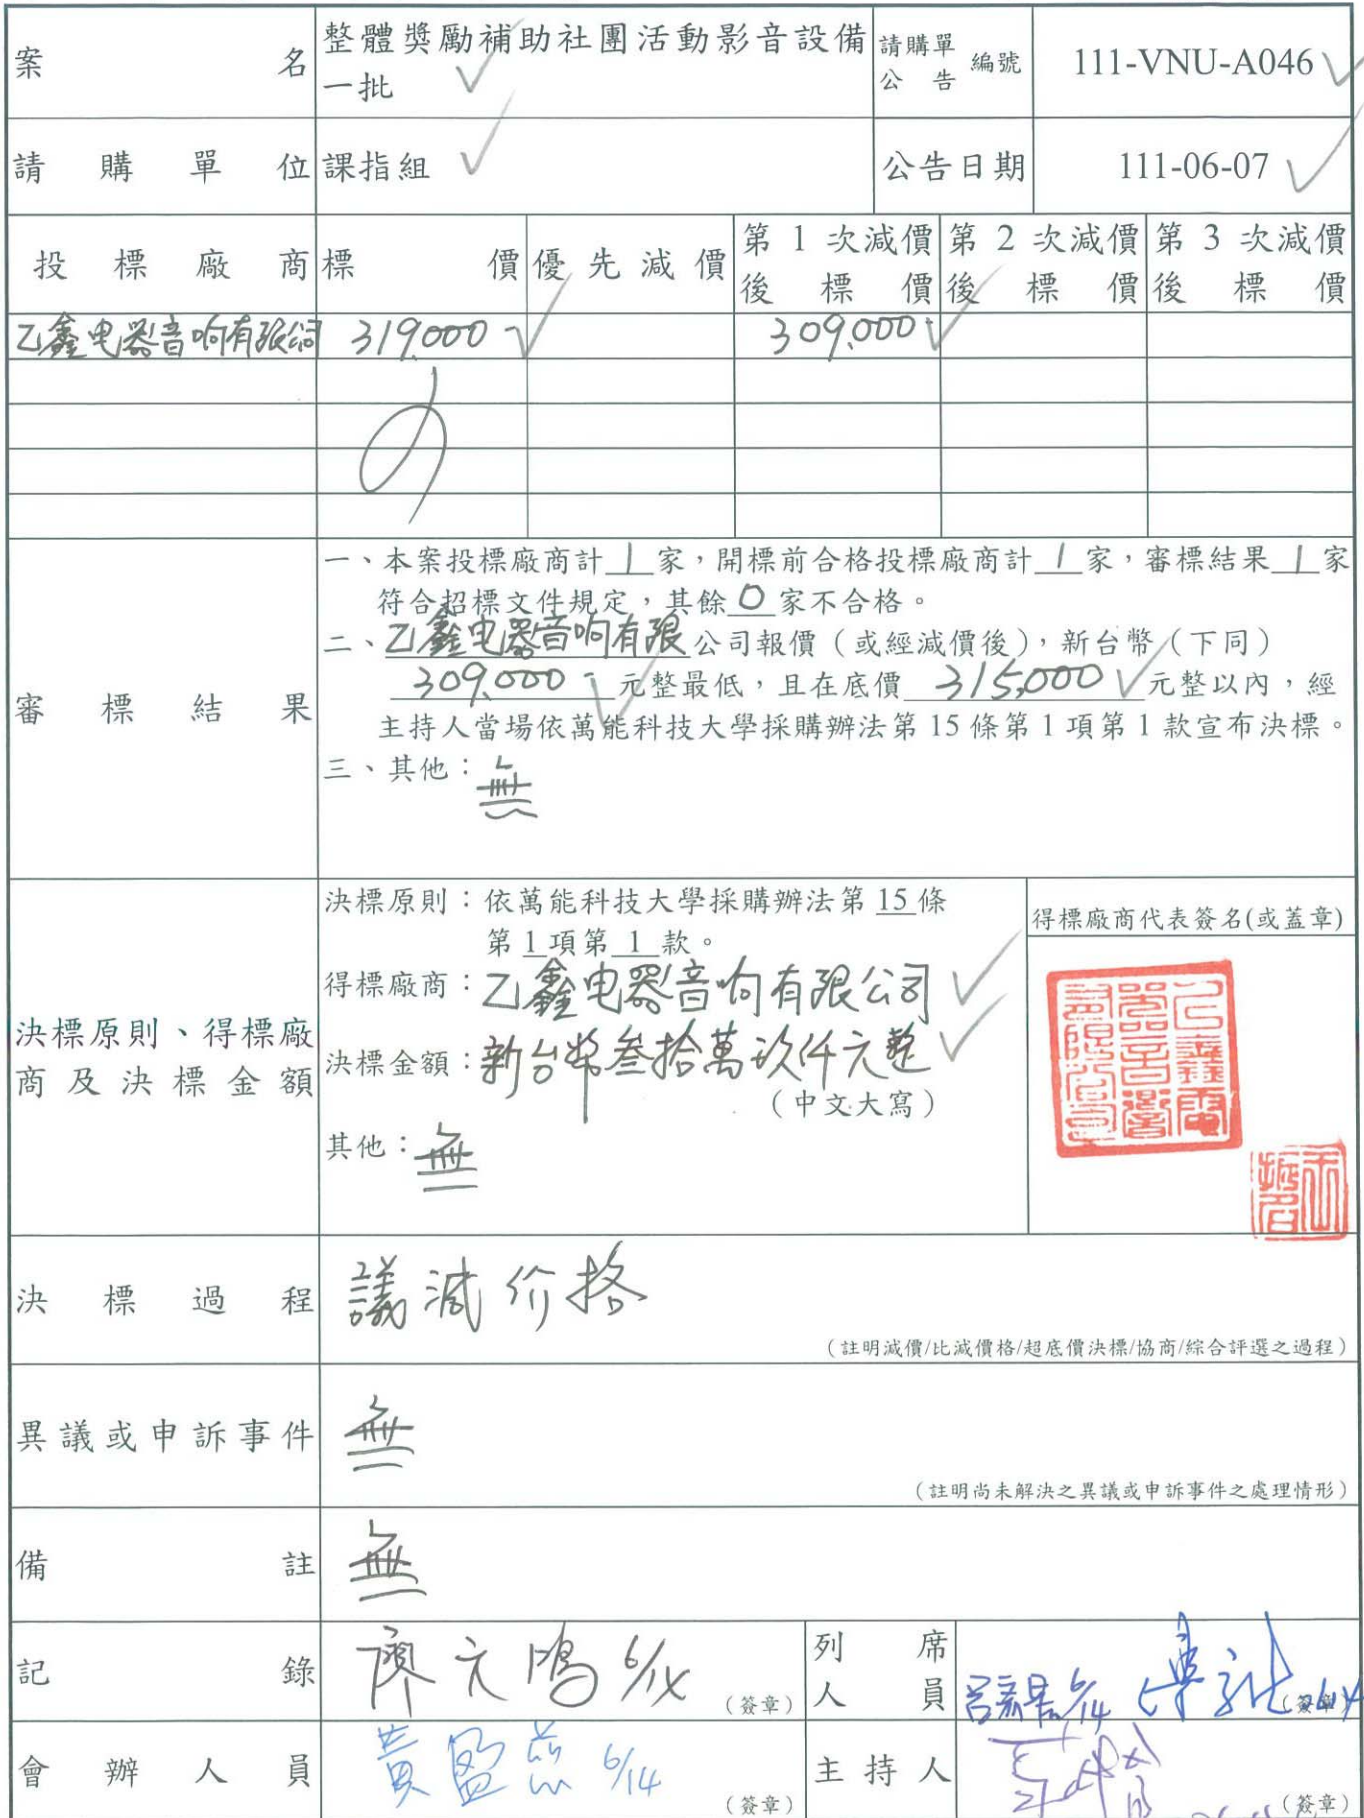 案名 整體獎勵補助社團活動影音設備 請購單 編號 111-VNU-A046
一批 公告
請購單位 課指組 公告日期 111-06-07
投標廠商 標價 優先減價 第1次減價 第2次減價 第3次減價
後標價 後標價 後標價
乙鑫电器音响有限公司 319,000 309,000
審標結果
一、本案投標廠商計 1 家，開標前合格投標廠商計 1 家，審標結果 1 家
符合招標文件規定，其餘 0 家不合格。
二、乙鑫电器音响有限公司報價（或經減價後），新台幣（下同）
309,000 元整最低，且在底價 315,000 元整以內，經
主持人當場依萬能科技大學採購辦法第 15 條第 1 項第 1 款宣布決標。
三、其他：無
決標原則、得標廠
商及決標金額
決標原則：依萬能科技大學採購辦法第 15 條
第 1 項第 1 款。
得標廠商：乙鑫电器音响有限公司
決標金額：新台幣叁拾萬玖仟元整
（中文大寫）
其他：無
得標廠商代表簽名(或蓋章)
決標過程 議減价格
（註明減價/比減價格/超底價決標/協商/綜合評選之過程）
異議或申訴事件 無
（註明尚未解決之異議或申訴事件之處理情形）
備註 無
記錄 廖元鴻 6/14 （簽章） 列席 人員 6/14 （簽章）
會辦人員 黃盈慈 6/14 （簽章） 主持人 （簽章）